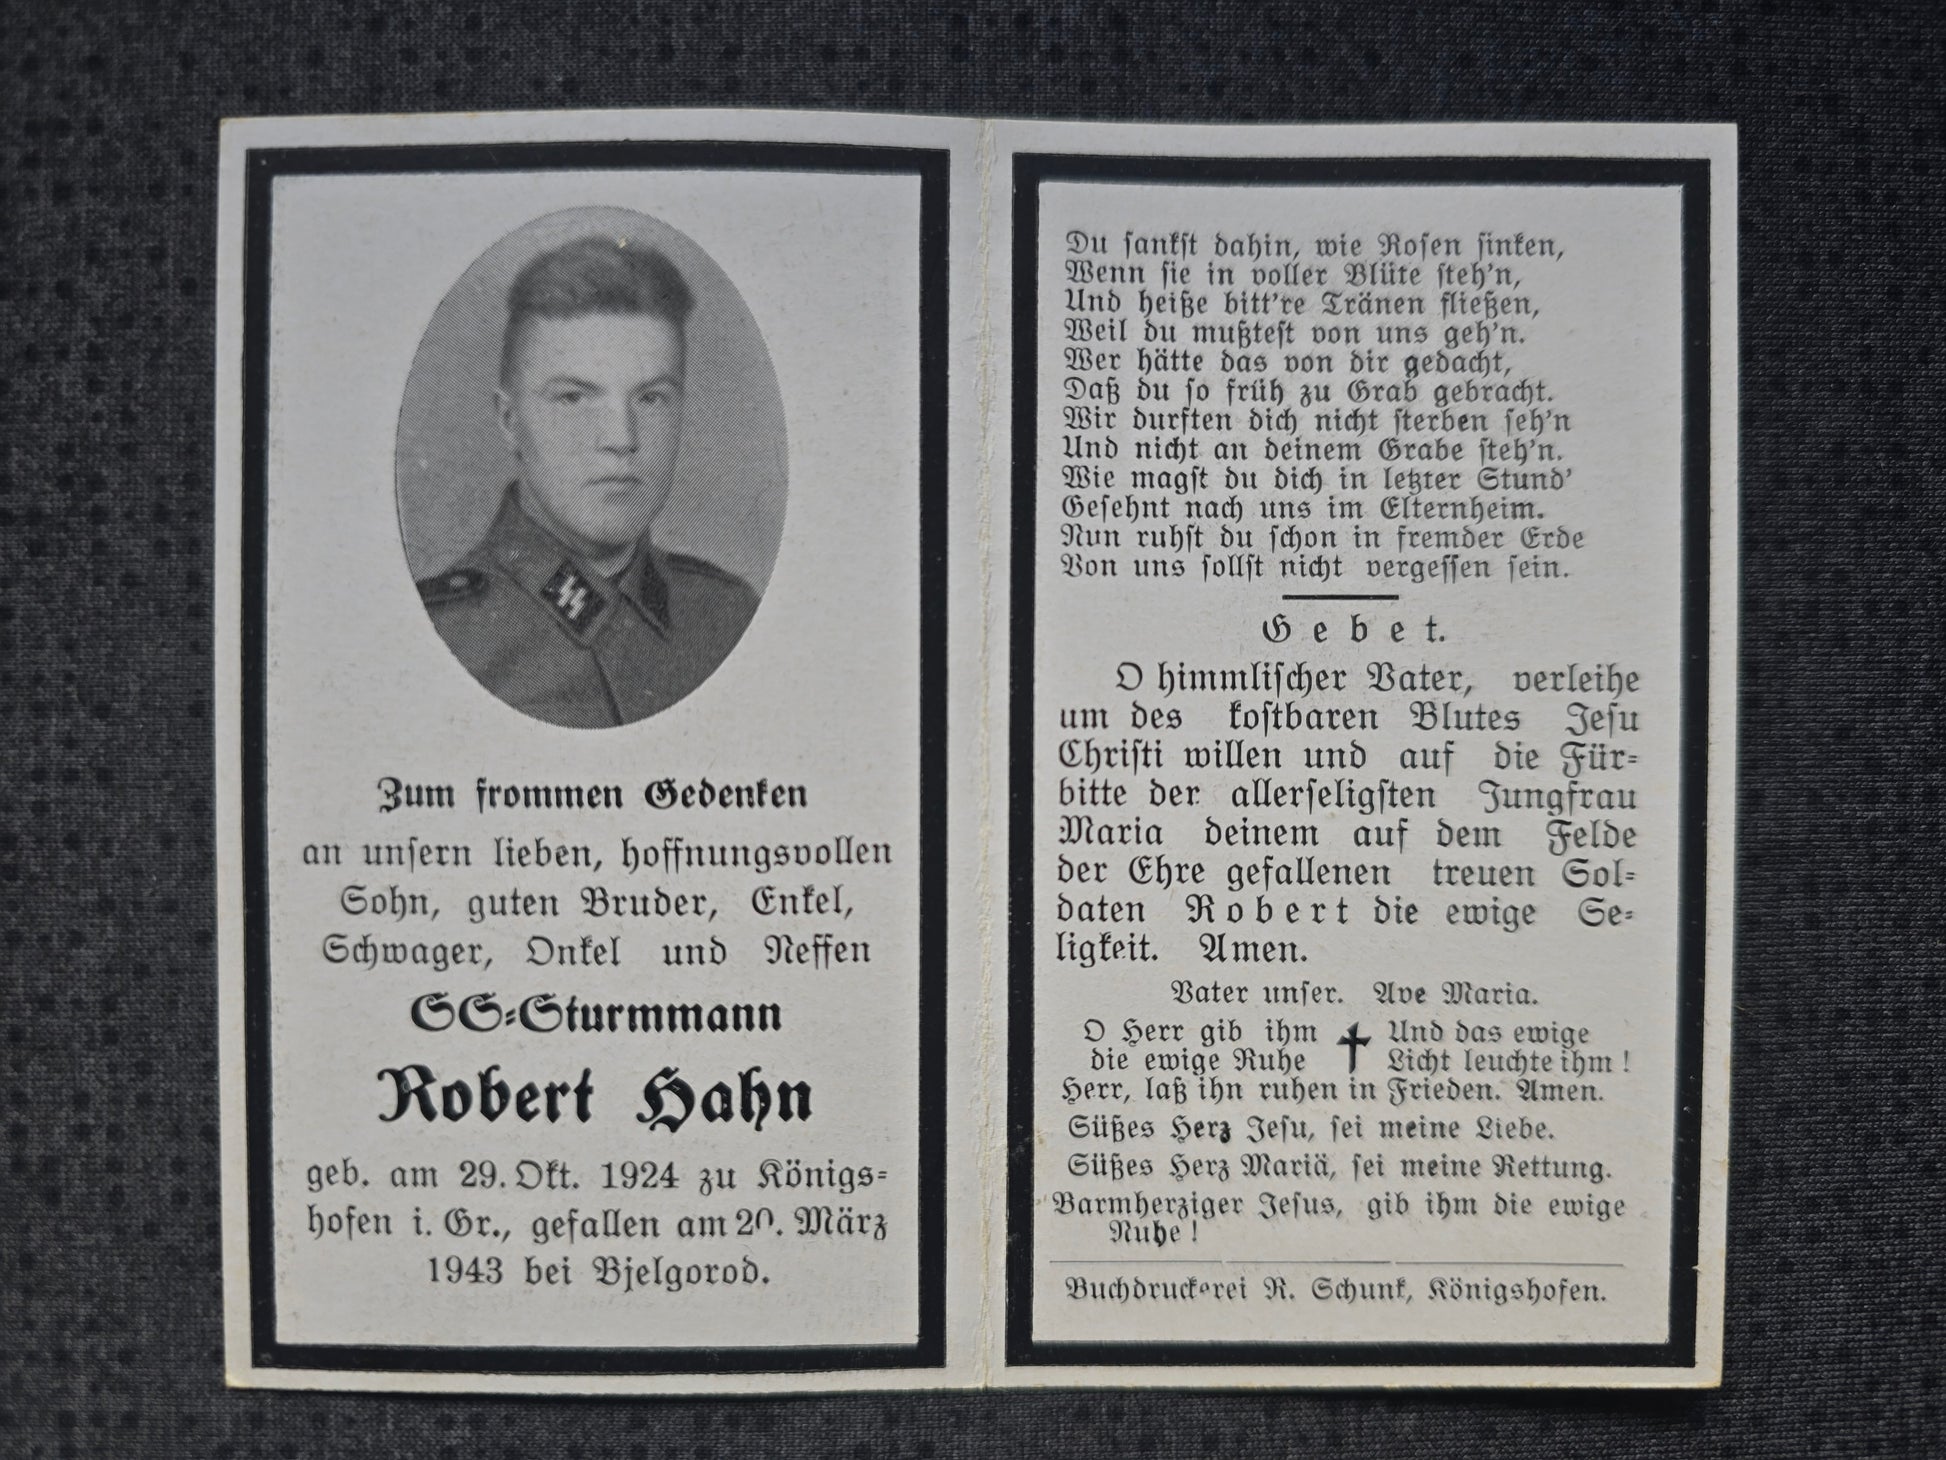 Zum frommen Gedenken
an unsern lieben, hoffnungsvollen
Sohn, guten Bruder, Enkel,
Schwager, Onkel und Neffen
SS-Sturmmann
Robert Hahn
geb. am 29. Okt. 1924 zu Königs-
hofen i. Gr., gefallen am 20. März
1943 bei Bjelgorod.
Du sankst dahin, wie Rosen sinken,
Wenn sie in voller Blüte steh'n,
Und heiße bitt're Tränen fließen,
Weil du mußtest von uns geh'n.
Wer hätte das von dir gedacht,
Daß du so früh zu Grab gebracht.
Wir durften dich nicht sterben seh'n
Und nicht an deinem Grabe steh'n.
Wie magst du dich in letzter Stund'
Gesehnt nach uns im Elternheim.
Nun ruhst du schon in fremder Erde
Von uns sollst nicht vergessen sein.
Gebet.
O himmlischer Vater, verleihe
um des kostbaren Blutes Jesu
Christi willen und auf die Für-
bitte der allerseligsten Jungfrau
Maria deinem auf dem Felde
der Ehre gefallenen treuen Sol-
daten Robert die ewige Se-
ligkeit. Amen.
Vater unser. Ave Maria.
O Herr gib ihm Und das ewige
die ewige Ruhe Licht leuchte ihm!
Herr, laß ihn ruhen in Frieden. Amen.
Süßes Herz Jesu, sei meine Liebe.
Süßes Herz Mariä, sei meine Rettung.
Barmherziger Jesus, gib ihm die ewige
Ruhe!
Buchdruckerei R. Schunk, Königshofen.